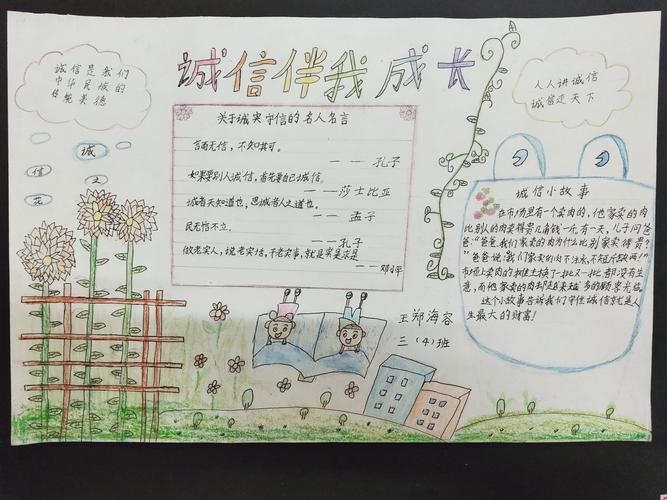 诚信伴我成长
诚信是我们
中华民族的
传统美德
诚
信
之
花
关于诚实守信的名人名言
言而无信，不知其可。
——孔子
如果要别人诚信，首先要自己诚信。
——莎士比亚
诚者天之道也，思诚者人之道也。
——孟子
民无信不立。
——孔子
做老实人，说老实话，干老实事，就是实事求是
——邓小平
王郑海容
三（4）班
人人讲诚信
诚信走天下
诚信小故事
在市场里有一个卖肉的，他家卖的肉
比别人的肉卖得贵几角钱一斤，有一天，儿子问爸
爸："爸爸，我们家卖的肉为什么比别家卖得贵？
"爸爸说："我们家卖的肉不注水，不短斤缺两！"
市场上卖肉的摊主换了一批又一批都没有生
意，而他家卖的肉却越来越多的顾客光临
这个小故事告诉我们守住诚信就是人
生最大的财富！